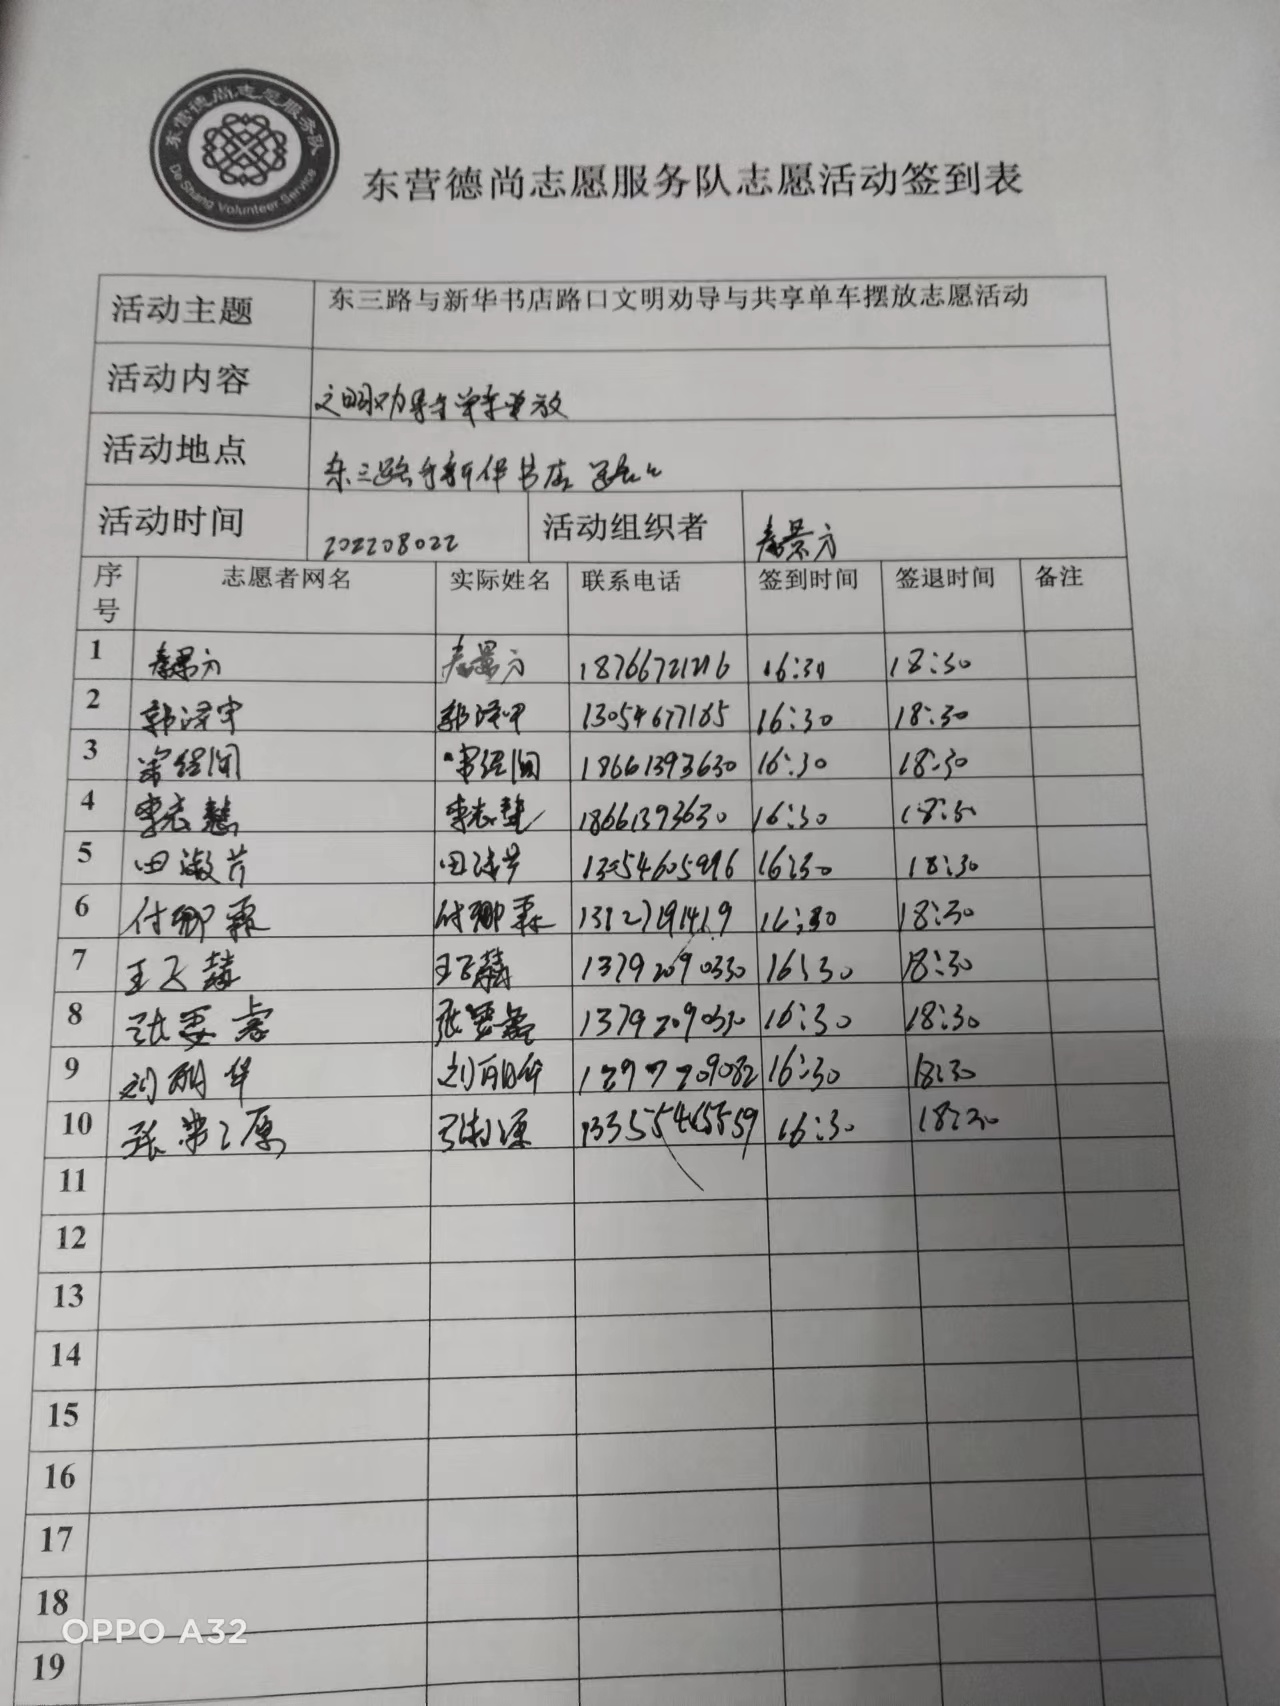 东营德尚志愿服务队
De Shang Volunteer Service
东营德尚志愿服务队志愿活动签到表
活动主题 东三路与新华书店路口文明劝导与共享单车摆放志愿活动
活动内容 文明劝导与单车摆放
活动地点 东三路与新华书店路口
活动时间 202208022 活动组织者 景方
序号 志愿者网名 实际姓名 联系电话 签到时间 签退时间 备注
1 景方 景方 16:30 18:30
2 郭泽宇 郭泽宇 13054677185 16:30 18:30
3 18661393630 16:30 18:30
4 李志慧 李志慧 18661393630 16:30 18:30
5 田淑芹 田淑芹 16:30 18:30
6 付卿霖 付卿霖 16:30 18:30
7 王飞 王飞 13792090330 16:30 18:30
8 张 张 13792090330 16:30 18:30
9 刘明华 刘明华 16:30 18:30
10 张 源 张 源 16:30 18:30
11
12
13
14
15
16
17
18
19
OPPO A32